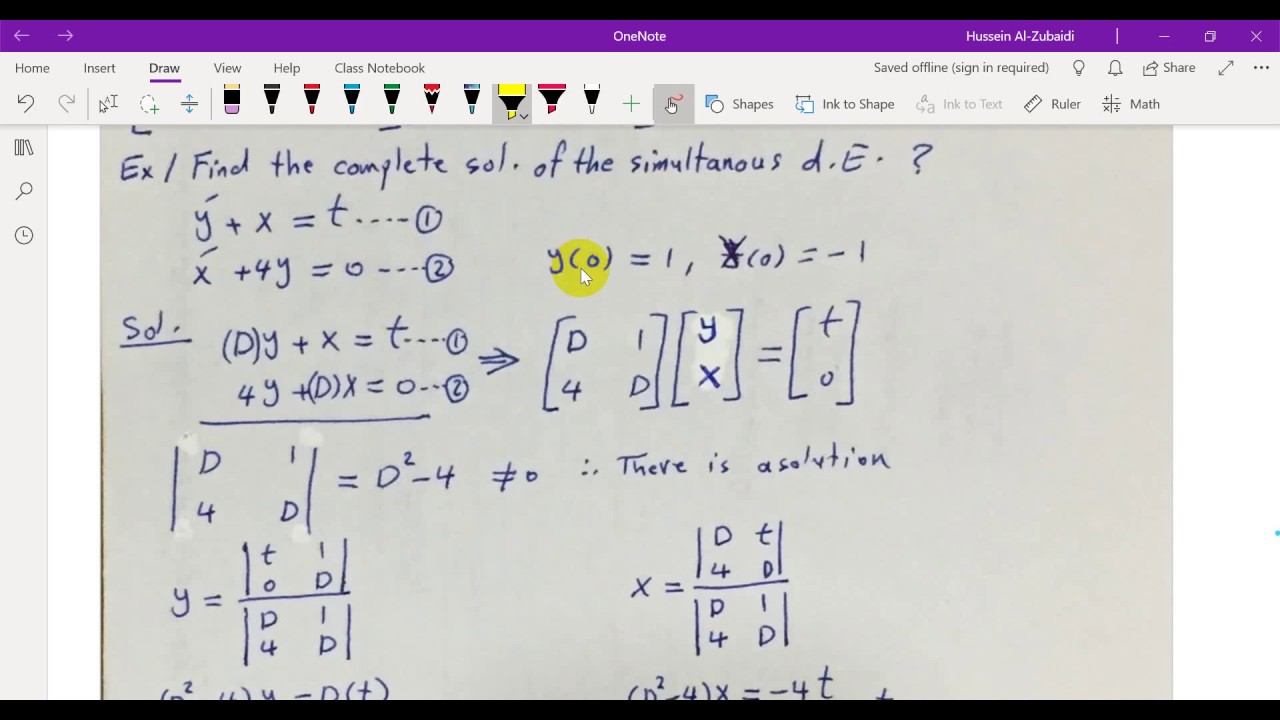 OneNote
Hussein Al-Zubaidi
Home Insert Draw View Help Class Notebook
Saved offline (sign in required) Share
Shapes Ink to Shape Ink to Text Ruler Math
Ex / Find the complete sol. of the simultanous d.E. ?
y' + x = t ---- ①
x' + 4y = 0 ---- ②
y(0) = 1, x(0) = -1
Sol. (D)y + x = t ---- ①
4y + (D)x = 0 -- ②
⇒ [D 1; 4 D] [y; x] = [t; 0]
|D 1; 4 D| = D² - 4 ≠ 0 ∴ There is a solution
y = |t 1; 0 D| / |D 1; 4 D|
x = |D t; 4 D| / |D 1; 4 D|
(D² - 4)y = D(t)
(D² - 4)x = -4t